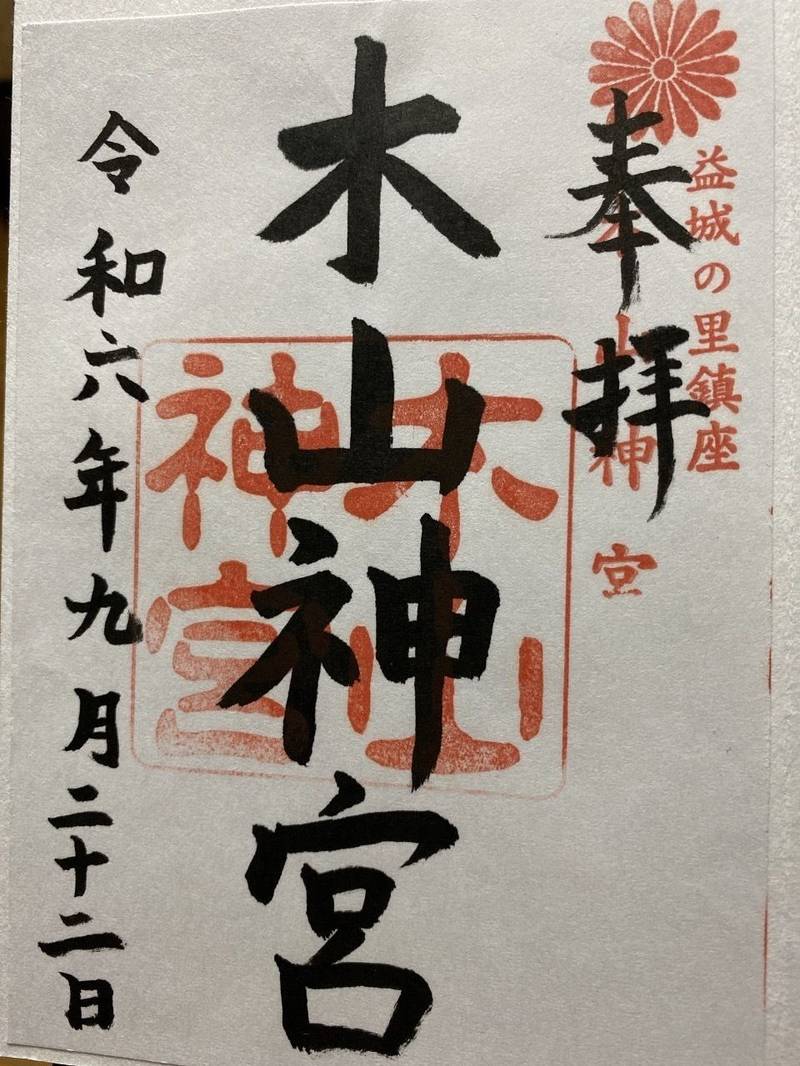 益城の里鎮座
木山神宮
奉拝
木山神宮
木山神宮
令和六年九月二十二日